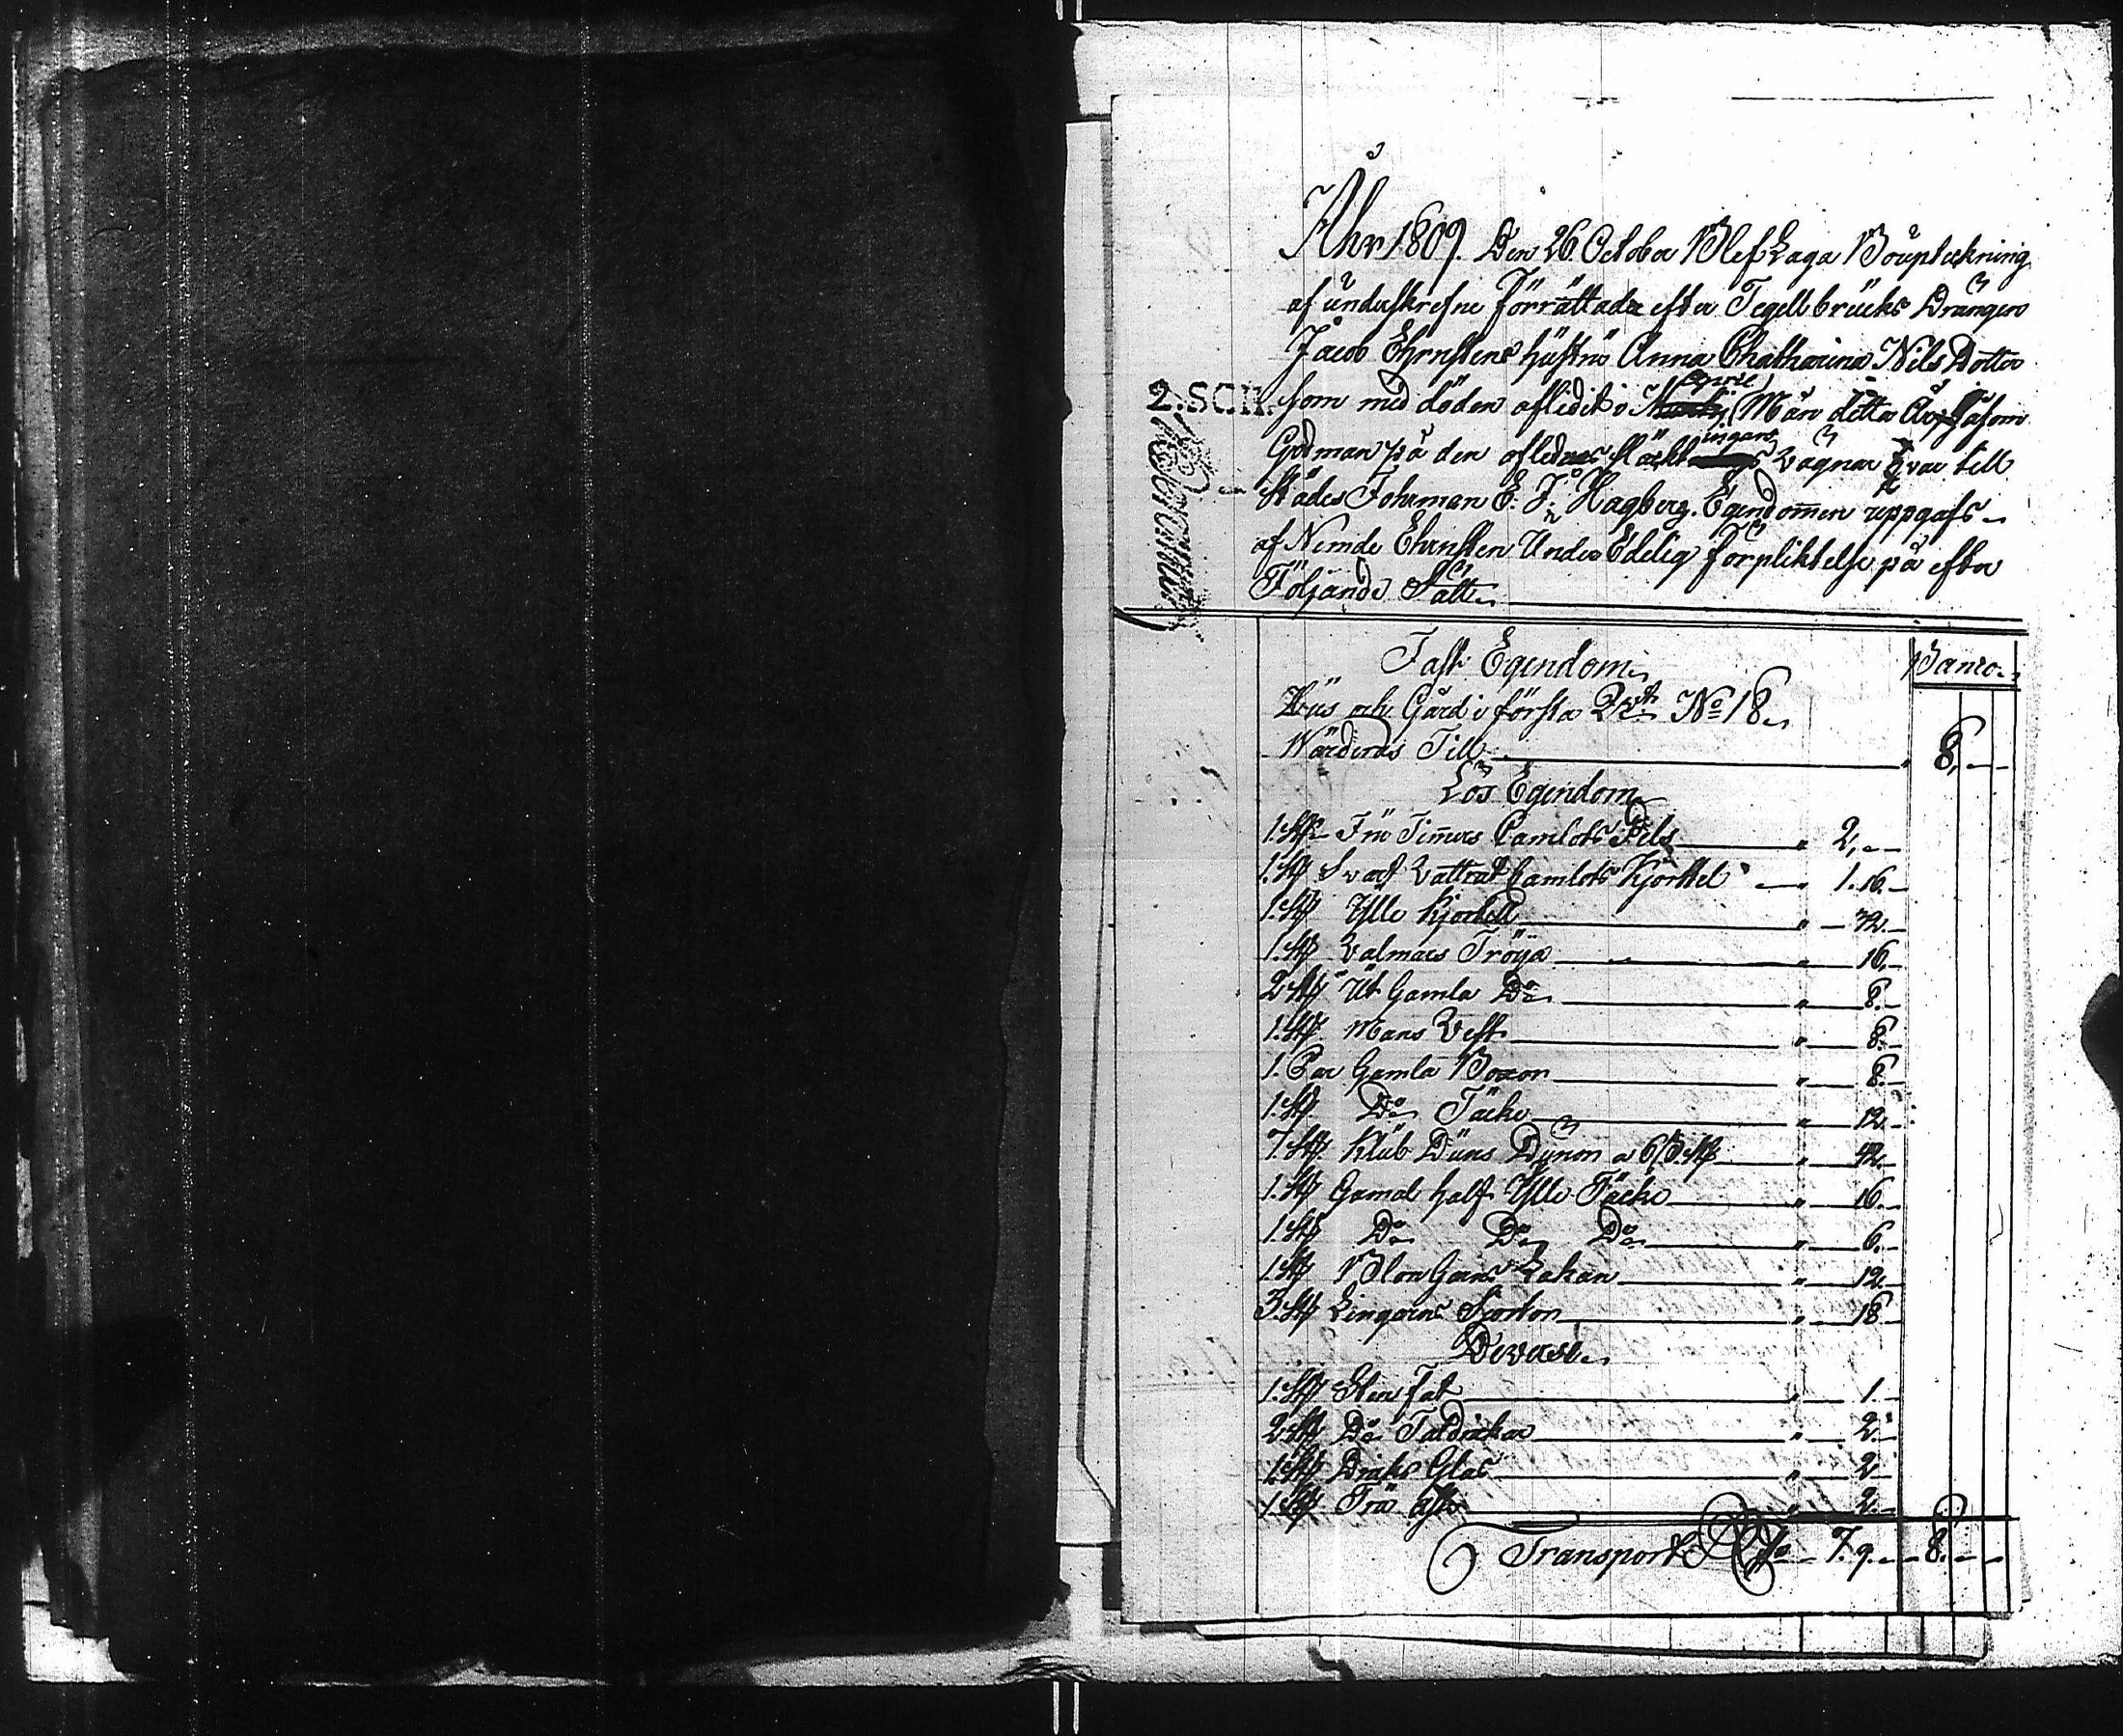 Åhr 1809. Den 26 October Blef Laga Bouptekning
af underskrefne förrättade efter Tegelbruks Drängen
Jacob Ehrnstens hustru Anna Chatharina Nils Dotter
2.SCH. som med döden aflidit i April Mån detta År, Såsom
Godman på den aflednes släktingars vägnar var till
städes Fohrman E. J. Hagberg. Egendommen uppgafs
af Nemde Ehrnsten Under Edelig förpliktelse på efter
Följande Sätt
Fast Egendom Banco
Hus och Gård i första Qvt No 18
Wärderas Till 8.
Lös Egendom
1. St Camlots Pels " 2.
1. St Svart Vattrat Camlots Kjorttel " 1.16.
1. St Ylle Kjortell " 32.
1. St Valmars Tröija " 16.
2 St Ut Gamla Do " 8.
1. St Mans Vest " 8.
1. Par Gamla Boxor " 8.
1. St Do Täcke " 12.
7. St Duns Dynor a 6 B. St " 42.
1. St Gamal half Ylle Täcke " 16.
1. St Do Do Do " 6.
1. St Blon Garns Lakan " 12.
3. St Lingarns Skorton " 18
Diverse
1. St Sten fat " 1.
2 St Do Taldrickar " 2.
1. St Glas " 2
1. St Trä " 2.
Transport Rdr 7. 9. 8.